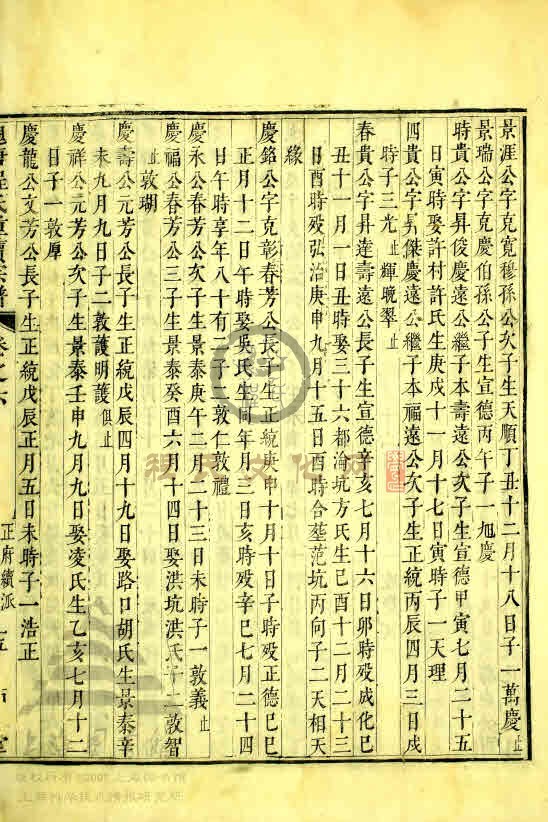 景涯公字克寬穆孫公次子生天順丁丑十二月十八日子一萬慶止
景瑞公字克慶伯孫公子生宣德丙午子一旭慶
時貴公字昇俊慶遠公繼子本壽遠公次子生宣德甲寅七月二十五
日寅時娶許村許氏生庚戌十一月十七日寅時子一天理
四貴公字昇傑慶遠公繼子本福遠公次子生正統丙辰四月三日戌
時子三光止輝晚翠止
春貴公字昇達壽遠公長子生宣德辛亥七月十六日卯時歿成化己
丑十一月一日丑時娶三十六都淪坑方氏生己酉十二月二十三
日酉時歿弘治庚申九月十五日酉時合塟范坑丙向子二天相天
緣
慶銘公字克彰春芳公長子生正統庚申十月十日子時歿正德己巳
正月十二日午時娶吳氏生同年月三日亥時歿辛巳七月二十四
日午時享年八十有二子二敦仁敦禮
慶永公春芳公次子生景泰庚午二月二十三日未時子一敦義止
慶福公春芳公三子生景泰癸酉六月十四日娶洪坑洪氏子二敦智
止敦瑚
慶壽公元芳公長子生正統戊辰四月十九日娶路口胡氏生景泰辛
未九月九日子二敦護明護俱止
慶祥公元芳公次子生景泰壬申九月九日娶凌氏生乙亥七月十二
日子一敦厚
慶龍公文芳公長子生正統戊辰正月五日未時子一浩正
卷之六
正府續派
程氏文化網
版权所有©2007上海图书馆
上海科学技术情报研究所